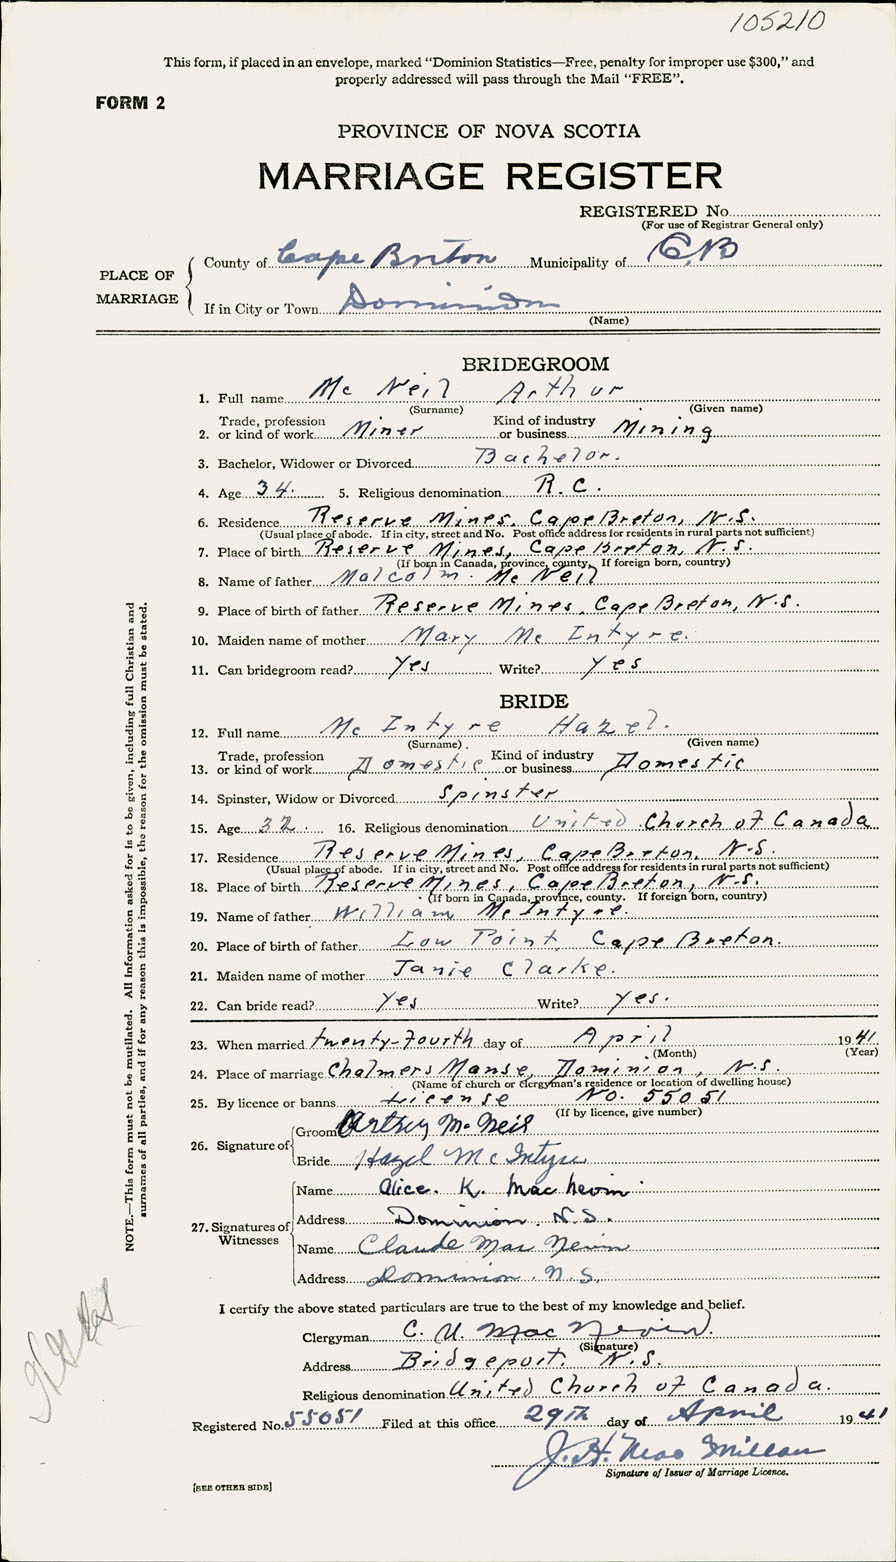 105210
This form, if placed in an envelope, marked “Dominion Statistics—Free, penalty for improper use $300,” and
properly addressed will pass through the Mail “FREE”.
FORM 2
PROVINCE OF NOVA SCOTIA
MARRIAGE REGISTER
REGISTERED No.
(For use of Registrar General only)
PLACE OF MARRIAGE
County of Cape Breton Municipality of C.B
If in City or Town Dominion
(Name)
BRIDEGROOM
1. Full name Mc Neil Arthur
(Surname) (Given name)
2. Trade, profession or kind of work Miner Kind of industry or business Mining
3. Bachelor, Widower or Divorced Bachelor.
4. Age 34. 5. Religious denomination R.C.
6. Residence Reserve Mines, Cape Breton, N.S.
(Usual place of abode. If in city, street and No. Post office address for residents in rural parts not sufficient)
7. Place of birth Reserve Mines, Cape Breton, N.S.
(If born in Canada, province, county. If foreign born, country)
8. Name of father Malcolm. Mc Neil
9. Place of birth of father Reserve Mines, Cape Breton, N.S.
10. Maiden name of mother Mary Mc Intyre.
11. Can bridegroom read? Yes Write? Yes
BRIDE
12. Full name Mc Intyre Hazel.
(Surname) (Given name)
13. Trade, profession or kind of work Domestic Kind of industry or business Domestic
14. Spinster, Widow or Divorced Spinster
15. Age 32. 16. Religious denomination United Church of Canada
17. Residence Reserve Mines, Cape Breton, N.S.
(Usual place of abode. If in city, street and No. Post office address for residents in rural parts not sufficient)
18. Place of birth Reserve Mines, Cape Breton, N.S.
(If born in Canada, province, county. If foreign born, country)
19. Name of father William Mc Intyre.
20. Place of birth of father Low Point, Cape Breton.
21. Maiden name of mother Janie Clarke.
22. Can bride read? Yes Write? Yes.
23. When married twenty-fourth day of April 1941
(Month) (Year)
24. Place of marriage Chalmers Manse, Dominion, N.S.
(Name of church or clergyman's residence or location of dwelling house)
25. By licence or banns License No. 55051
(If by licence, give number)
26. Signature of
Groom Arthur McNeil
Bride Hazel McIntyre
27. Signatures of Witnesses
Name Alice. K. MacNevin
Address Dominion. N.S.
Name Claude MacNevin
Address Dominion. N.S.
I certify the above stated particulars are true to the best of my knowledge and belief.
Clergyman C. U. MacNevin.
(Signature)
Address Bridgeport, N.S.
Religious denomination United Church of Canada.
Registered No. 55051 Filed at this office 29th day of April 1941
J. H. MacMillan
Signature of Issuer of Marriage Licence.
[SEE OTHER SIDE]
NOTE.—This form must not be mutilated. All Information asked for is to be given, including full Christian and
surnames of all parties, and if for any reason this is impossible, the reason for the omission must be stated.